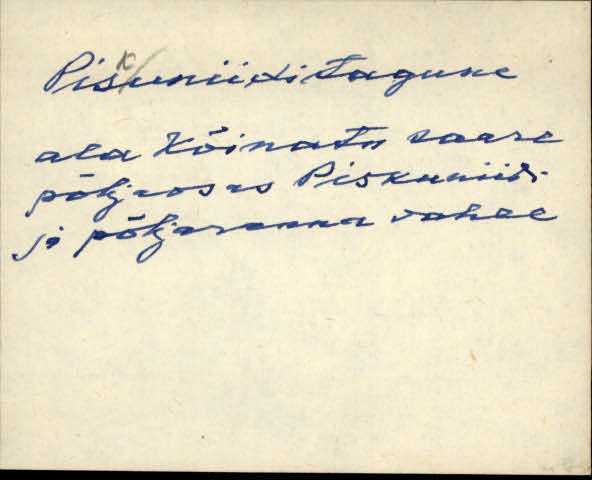 Piskuniiditagune
ala Kõinastu saare
põhjaosas Piskuniidi
ja põhjaranna vahel